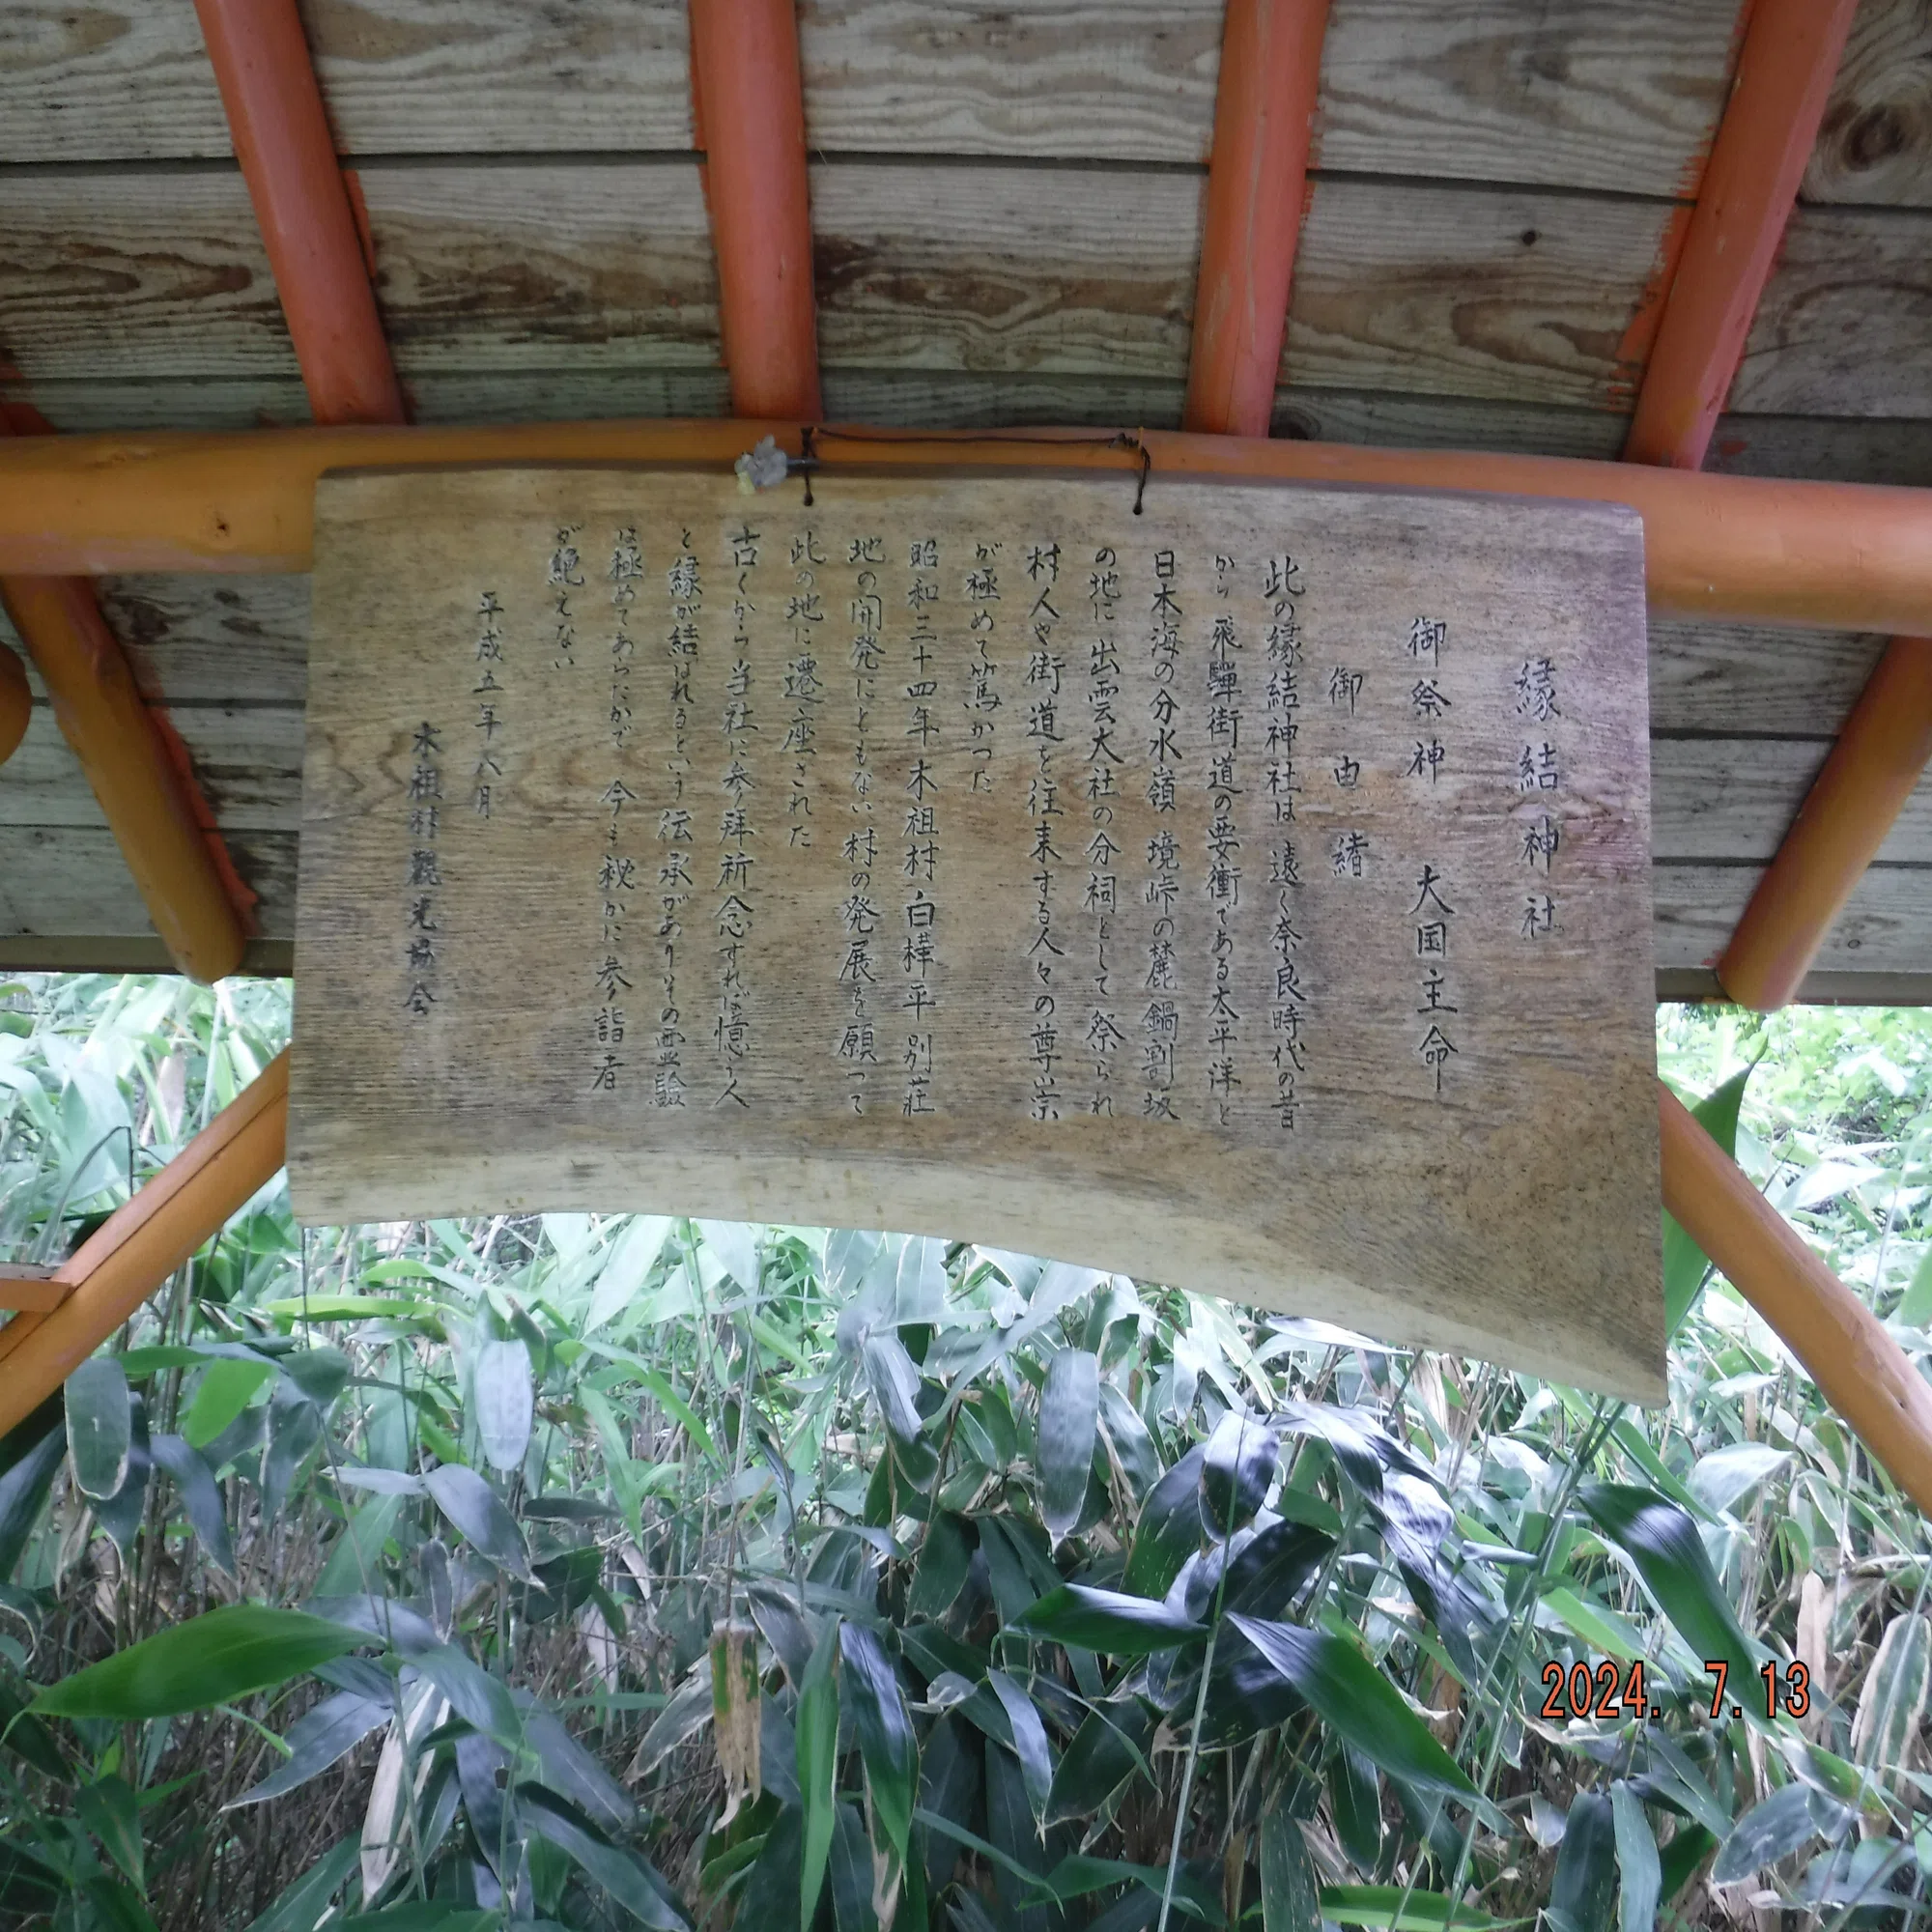 縁結神社
御祭神 大国主命
御由緒
此の縁結神社は 遠く奈良時代の昔
から 飛騨街道の要衝である太平洋と
日本海の分水嶺 境峠の麓 鍋割坂
の地に 出雲大社の分祠として 祭られ
村人や街道を往来する人々の尊崇
が極めて篤かった
昭和三十四年 木祖村 白樺平 別荘
地の開発にともない 村の発展を願って
此の地に遷座された
古くから当社に参拝祈念すれば憶う人
と縁が結ばれるという 伝承があり その霊験
は極めてあらたかで 今も秘かに 参詣者
が絶えない
平成五年八月
木祖村観光協会
2024. 7.13